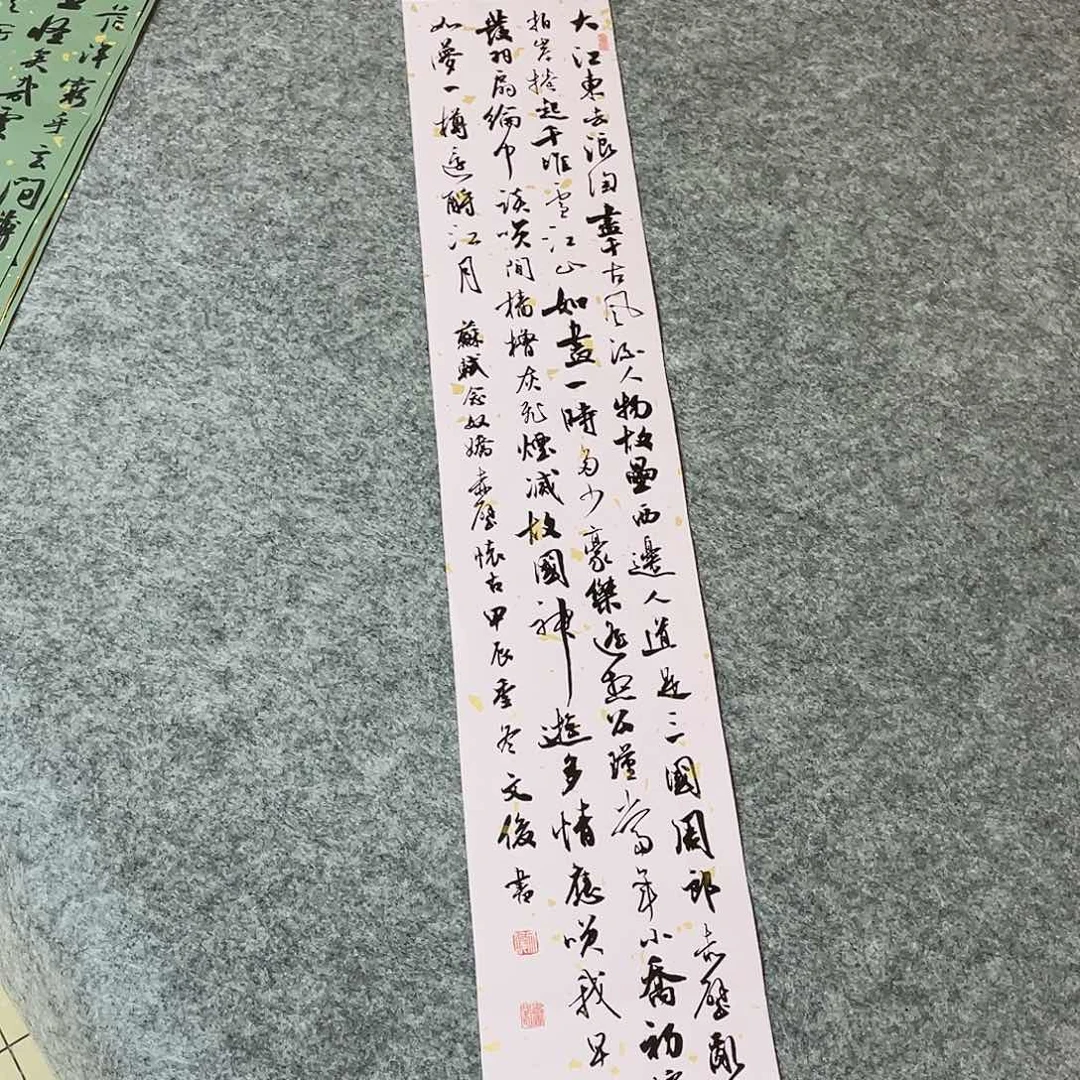 大江東去浪淘盡千古風流人物故壘西邊人道是三國周郎赤壁亂
拍岸捲起千堆雪江山如畫一時多少豪傑遙想公瑾當年小喬初
發羽扇綸巾談咲間檣櫓灰飛煙滅故國神遊多情應咲我早
如夢一樽還酹江月 蘇軾念奴嬌赤壁懷古甲辰冬文俊書
茫洋窮乎玄間薄
怪矣哉雲